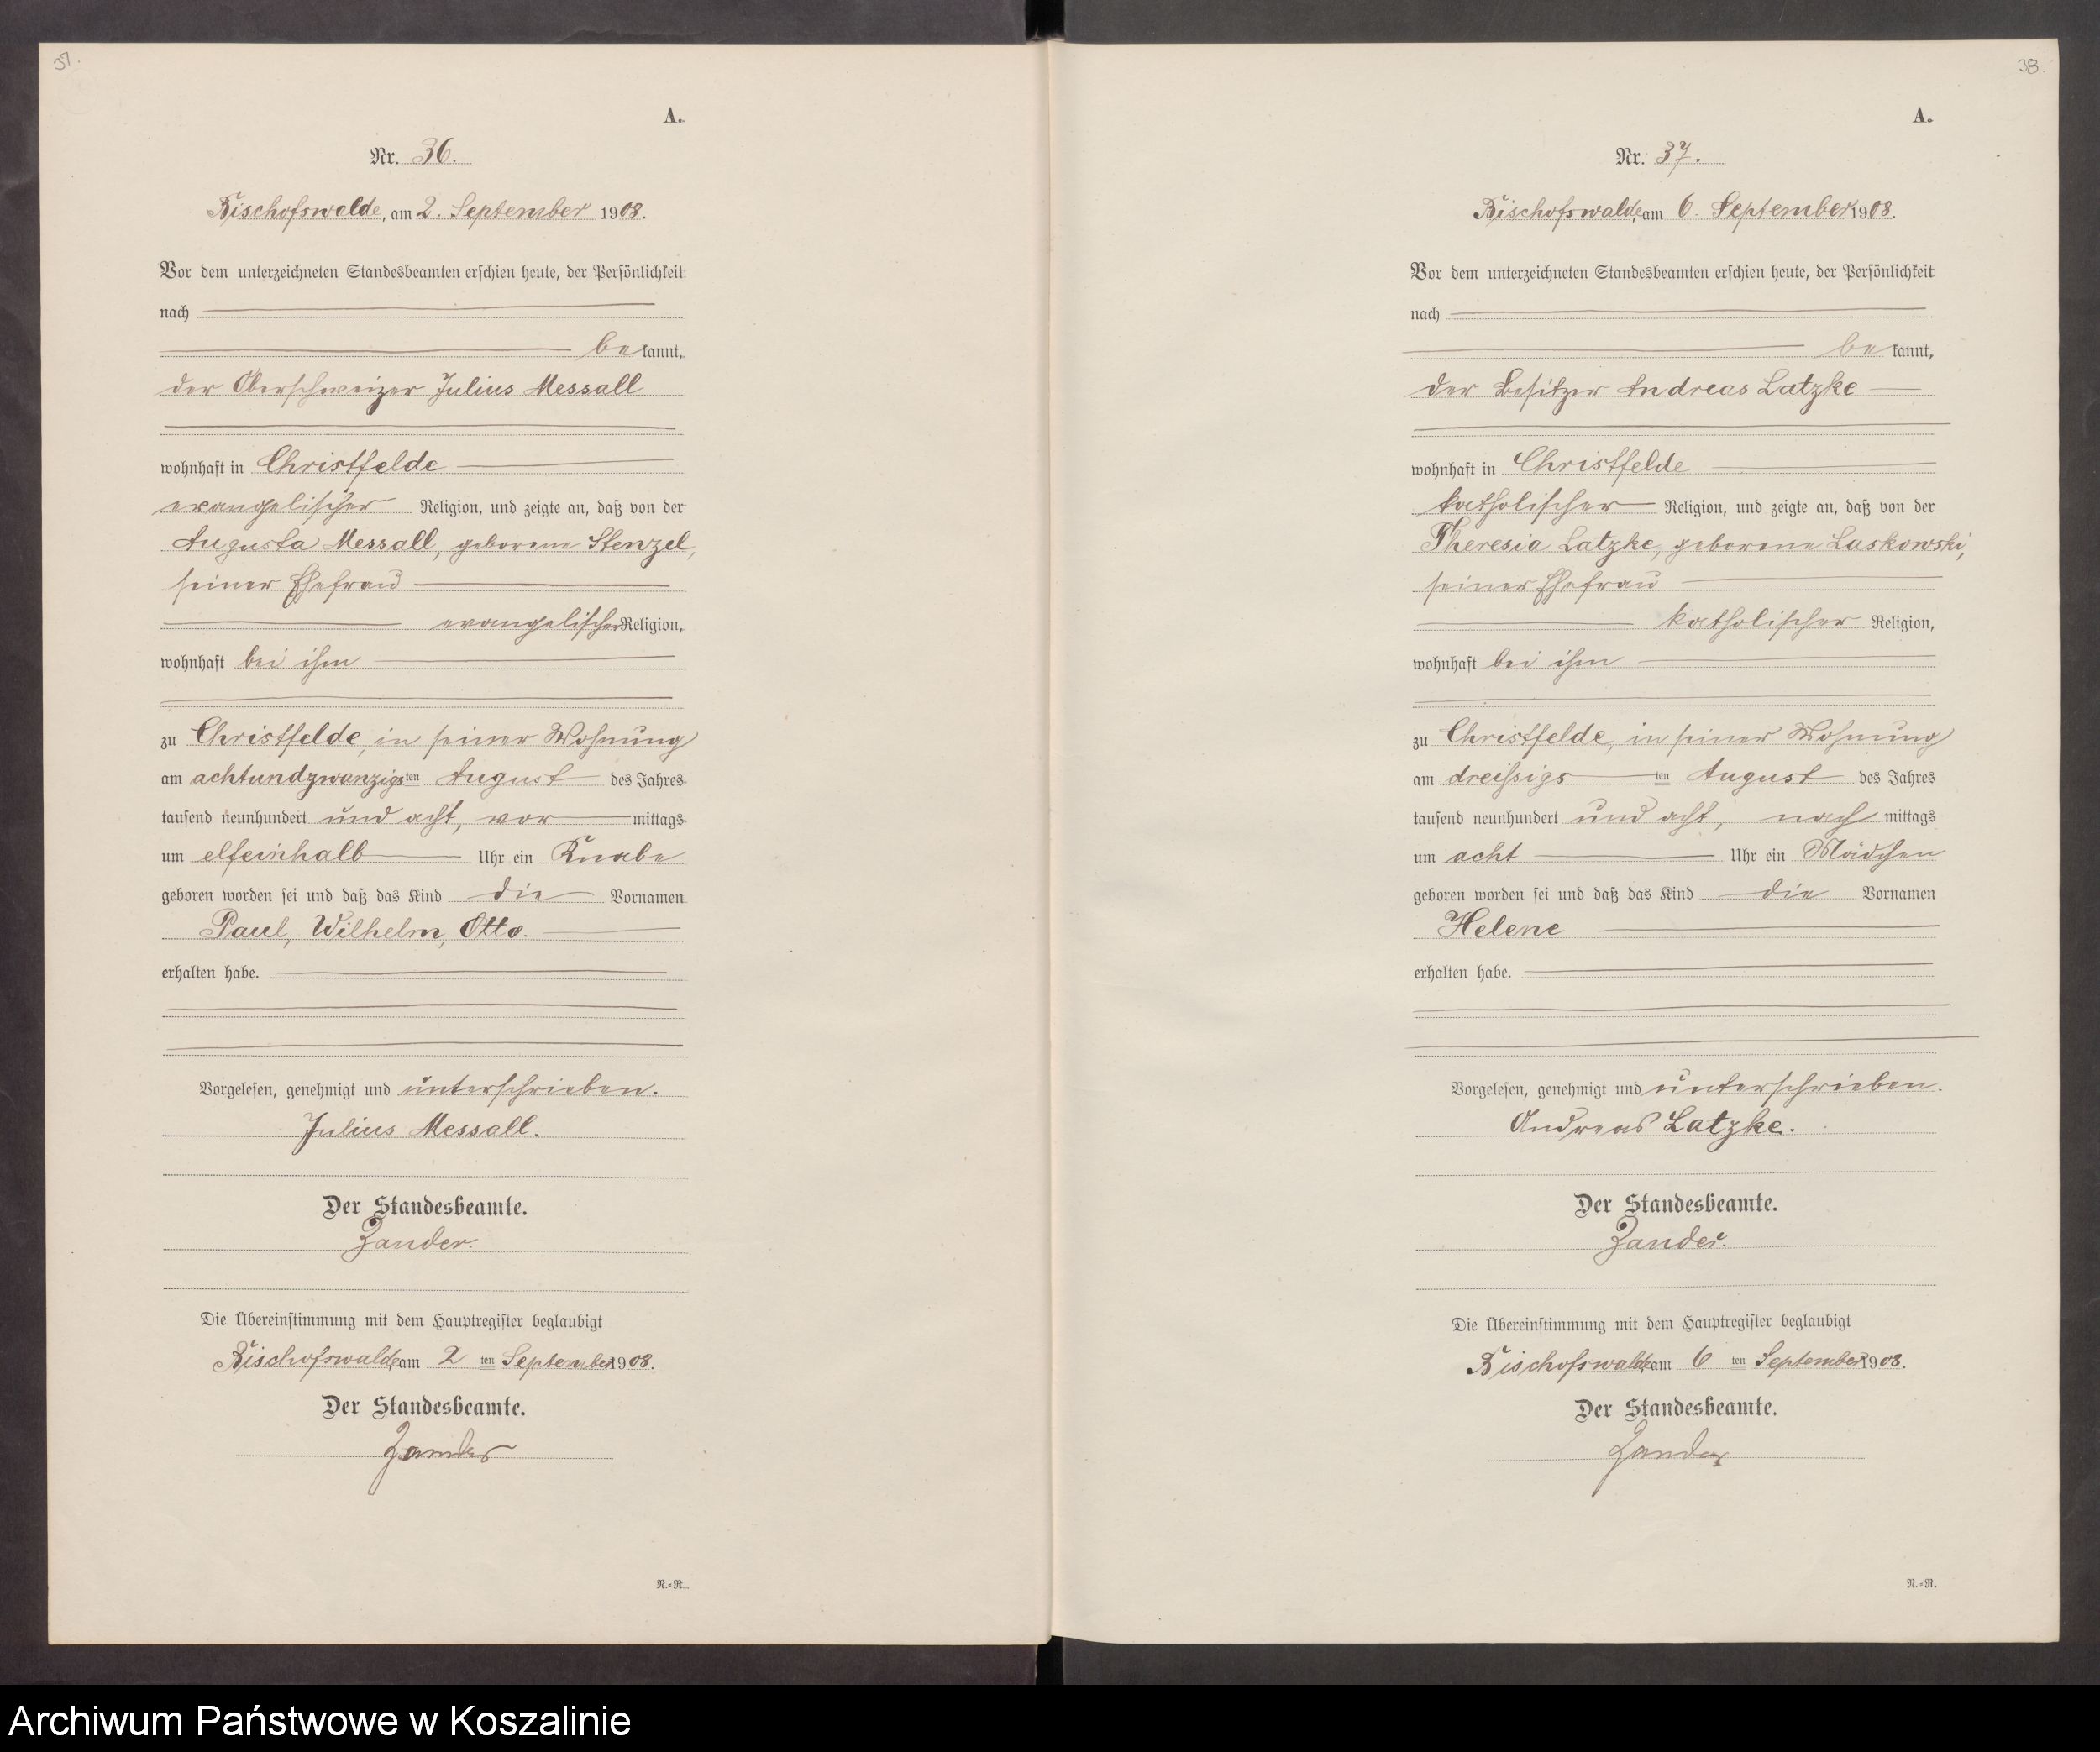 37.
A.
Nr. 36.
Bischofswalde, am 2. September 1908.
Vor dem unterzeichneten Standesbeamten erschien heute, der Persönlichkeit
nach
bekannt,
der Oberschweizer Julius Messall
wohnhaft in Christfelde
evangelischer Religion, und zeigte an, daß von der
Augusta Messall, geborene Stenzel,
seiner Ehefrau
evangelischer Religion,
wohnhaft bei ihm
zu Christfelde, in seiner Wohnung
am achtundzwanzigsten August des Jahres
tausend neunhundert und acht, vormittags
um elfeinhalb Uhr ein Knabe
geboren worden sei und daß das Kind die Vornamen
Paul, Wilhelm, Otto.
erhalten habe.
Vorgelesen, genehmigt und unterschrieben.
Julius Messall.
Der Standesbeamte.
Zander.
Die Übereinstimmung mit dem Hauptregister beglaubigt
Bischofswalde, am 2 ten September 1908.
Der Standesbeamte.
Zander
N.=R.
38.
A.
Nr. 37.
Bischofswalde, am 6. September 1908.
Vor dem unterzeichneten Standesbeamten erschien heute, der Persönlichkeit
nach
bekannt,
der Besitzer Andreas Latzke
wohnhaft in Christfelde
katholischer Religion, und zeigte an, daß von der
Theresia Latzke, geborene Laskowski,
seiner Ehefrau
katholischer Religion,
wohnhaft bei ihm
zu Christfelde, in seiner Wohnung
am dreißigsten August des Jahres
tausend neunhundert und acht, nachmittags
um acht Uhr ein Mädchen
geboren worden sei und daß das Kind die Vornamen
Helene
erhalten habe.
Vorgelesen, genehmigt und unterschrieben.
Andreas Latzke.
Der Standesbeamte.
Zander.
Die Übereinstimmung mit dem Hauptregister beglaubigt
Bischofswalde, am 6 ten September 1908.
Der Standesbeamte.
Zander
N.=R.
Archiwum Państwowe w Koszalinie